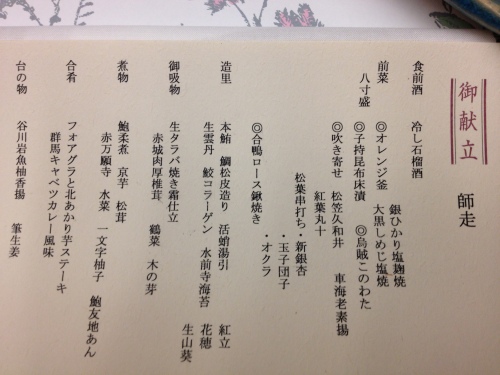 御献立 師走
食前酒 冷し石榴酒
前菜 ◎オレンジ釜 銀ひかり塩麹焼
大黒しめじ塩焼
八寸盛 ◎子持昆布床漬 ◎烏賊このわた
◎吹き寄せ 松笠久和井 車海老素揚
紅葉丸十
松葉串打ち・新銀杏
・玉子団子
・オクラ
◎合鴨ロース鍬焼き
造里 本鮪 鯛松皮造り 活蛸湯引 紅立
生雲丹 鮫コラーゲン 水前寺海苔 花穂
生山葵
御吸物 生タラバ焼き霜仕立
赤城肉厚椎茸 鶴菜 木の芽
煮物 鮑柔煮 京芋 松茸
赤万願寺 水菜 一文字柚子 鮑友地あん
合肴 フォアグラと北あかり芋ステーキ
群馬キャベツカレー風味
台の物 谷川岩魚柚香揚 筆生姜